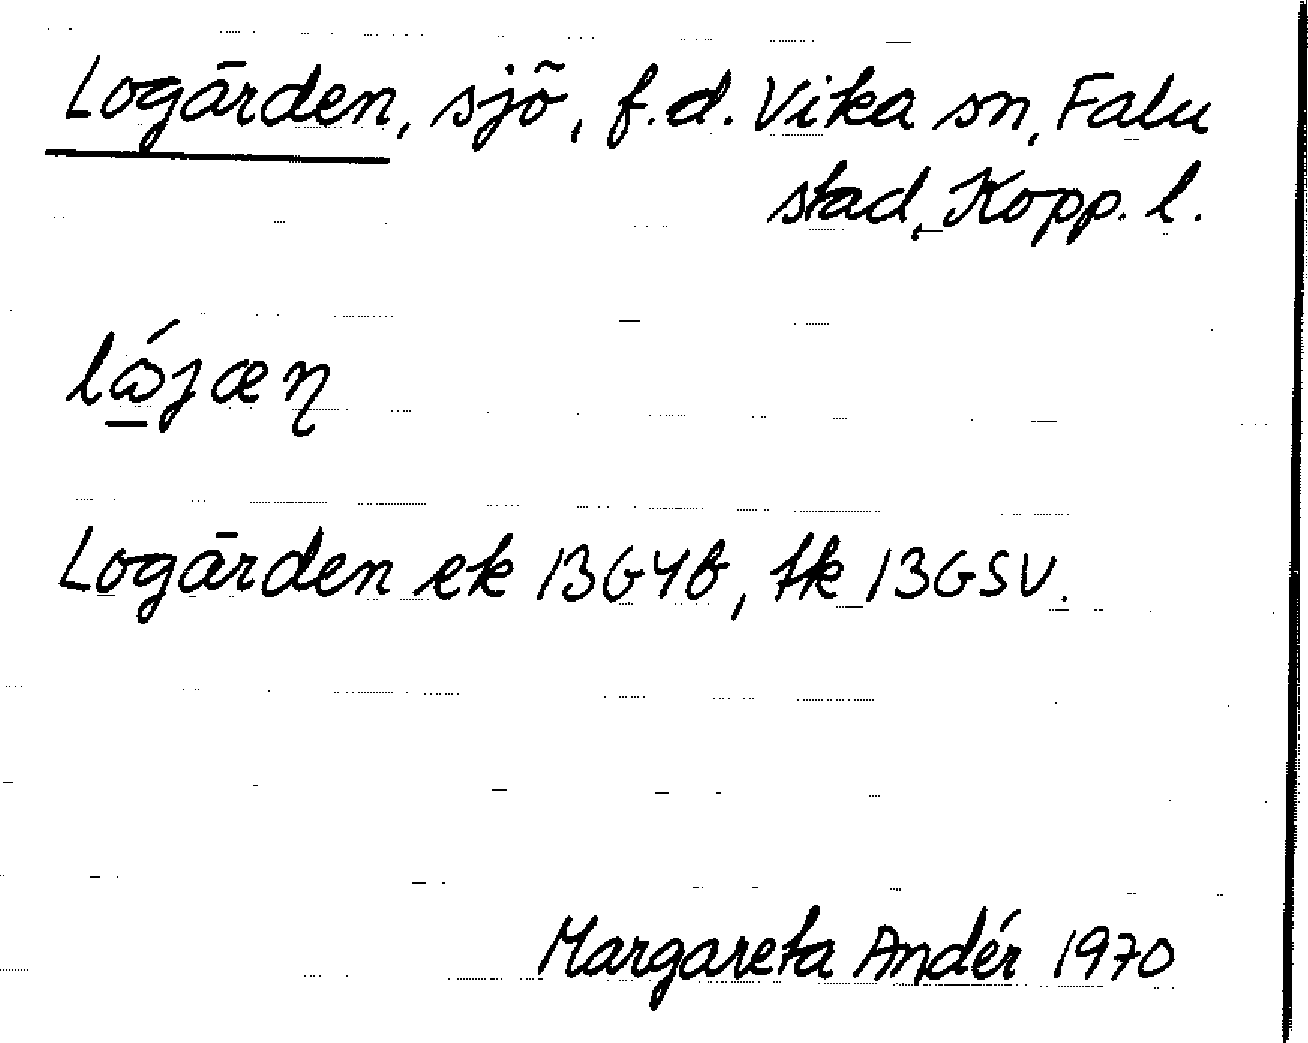 Logården, sjö, f.d. Vika sn, Falu
stad, Kopp. l.
lǻjæn
Logården ek 13G4b, tk 13GSV.
Margareta Andér 1970